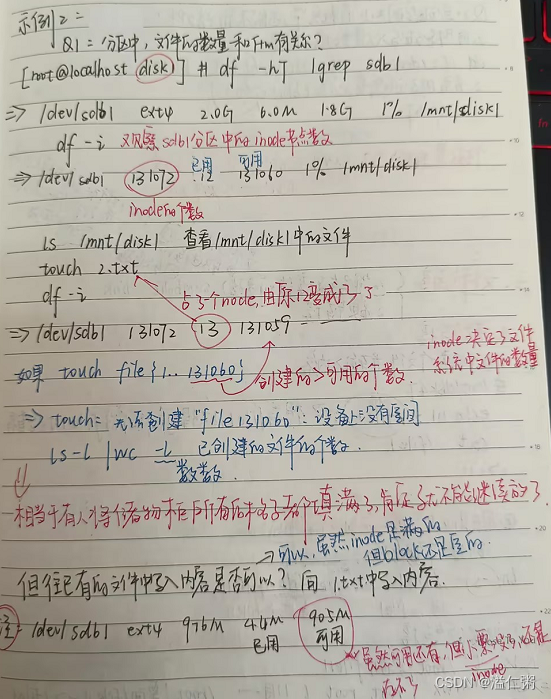 示例2：
Q1：分区中，文件的数量和什么有关系？
[root@localhost disk]# df -hT |grep sdb1
=> /dev/sdb1 ext4 2.0G 6.0M 1.8G 1% /mnt/disk1
df -i 观察sdb1分区中的inode节点数
已用 可用
=> /dev/sdb1 131072 12 131060 1% /mnt/disk1
inode的个数
ls /mnt/disk1 查看/mnt/disk1中的文件
touch 2.txt
df -i 占了个node,由原12变成了13
=> /dev/sdb1 131072 13 131059 ——
inode决定了文件
系统中文件的数量
如果 touch file{1..131060} 创建的>可用的个数.
=> touch: 无法创建"file131060": 设备上没有空间
ls -l |wc -l 已创建的文件的个数.
数数数.
相当于有人将储物柜所有的格子都填满了,肯定无法继续放了
→可以,虽然inode是满的
但block还是空的.
但往已有的文件中写入内容是否可以? 向1.txt中写入内容.
注: /dev/sdb1 ext4 976M 4.4M 905M
已用 可用
虽然可用还有,但 还是
inode
存不了
CSDN @溢仁粥